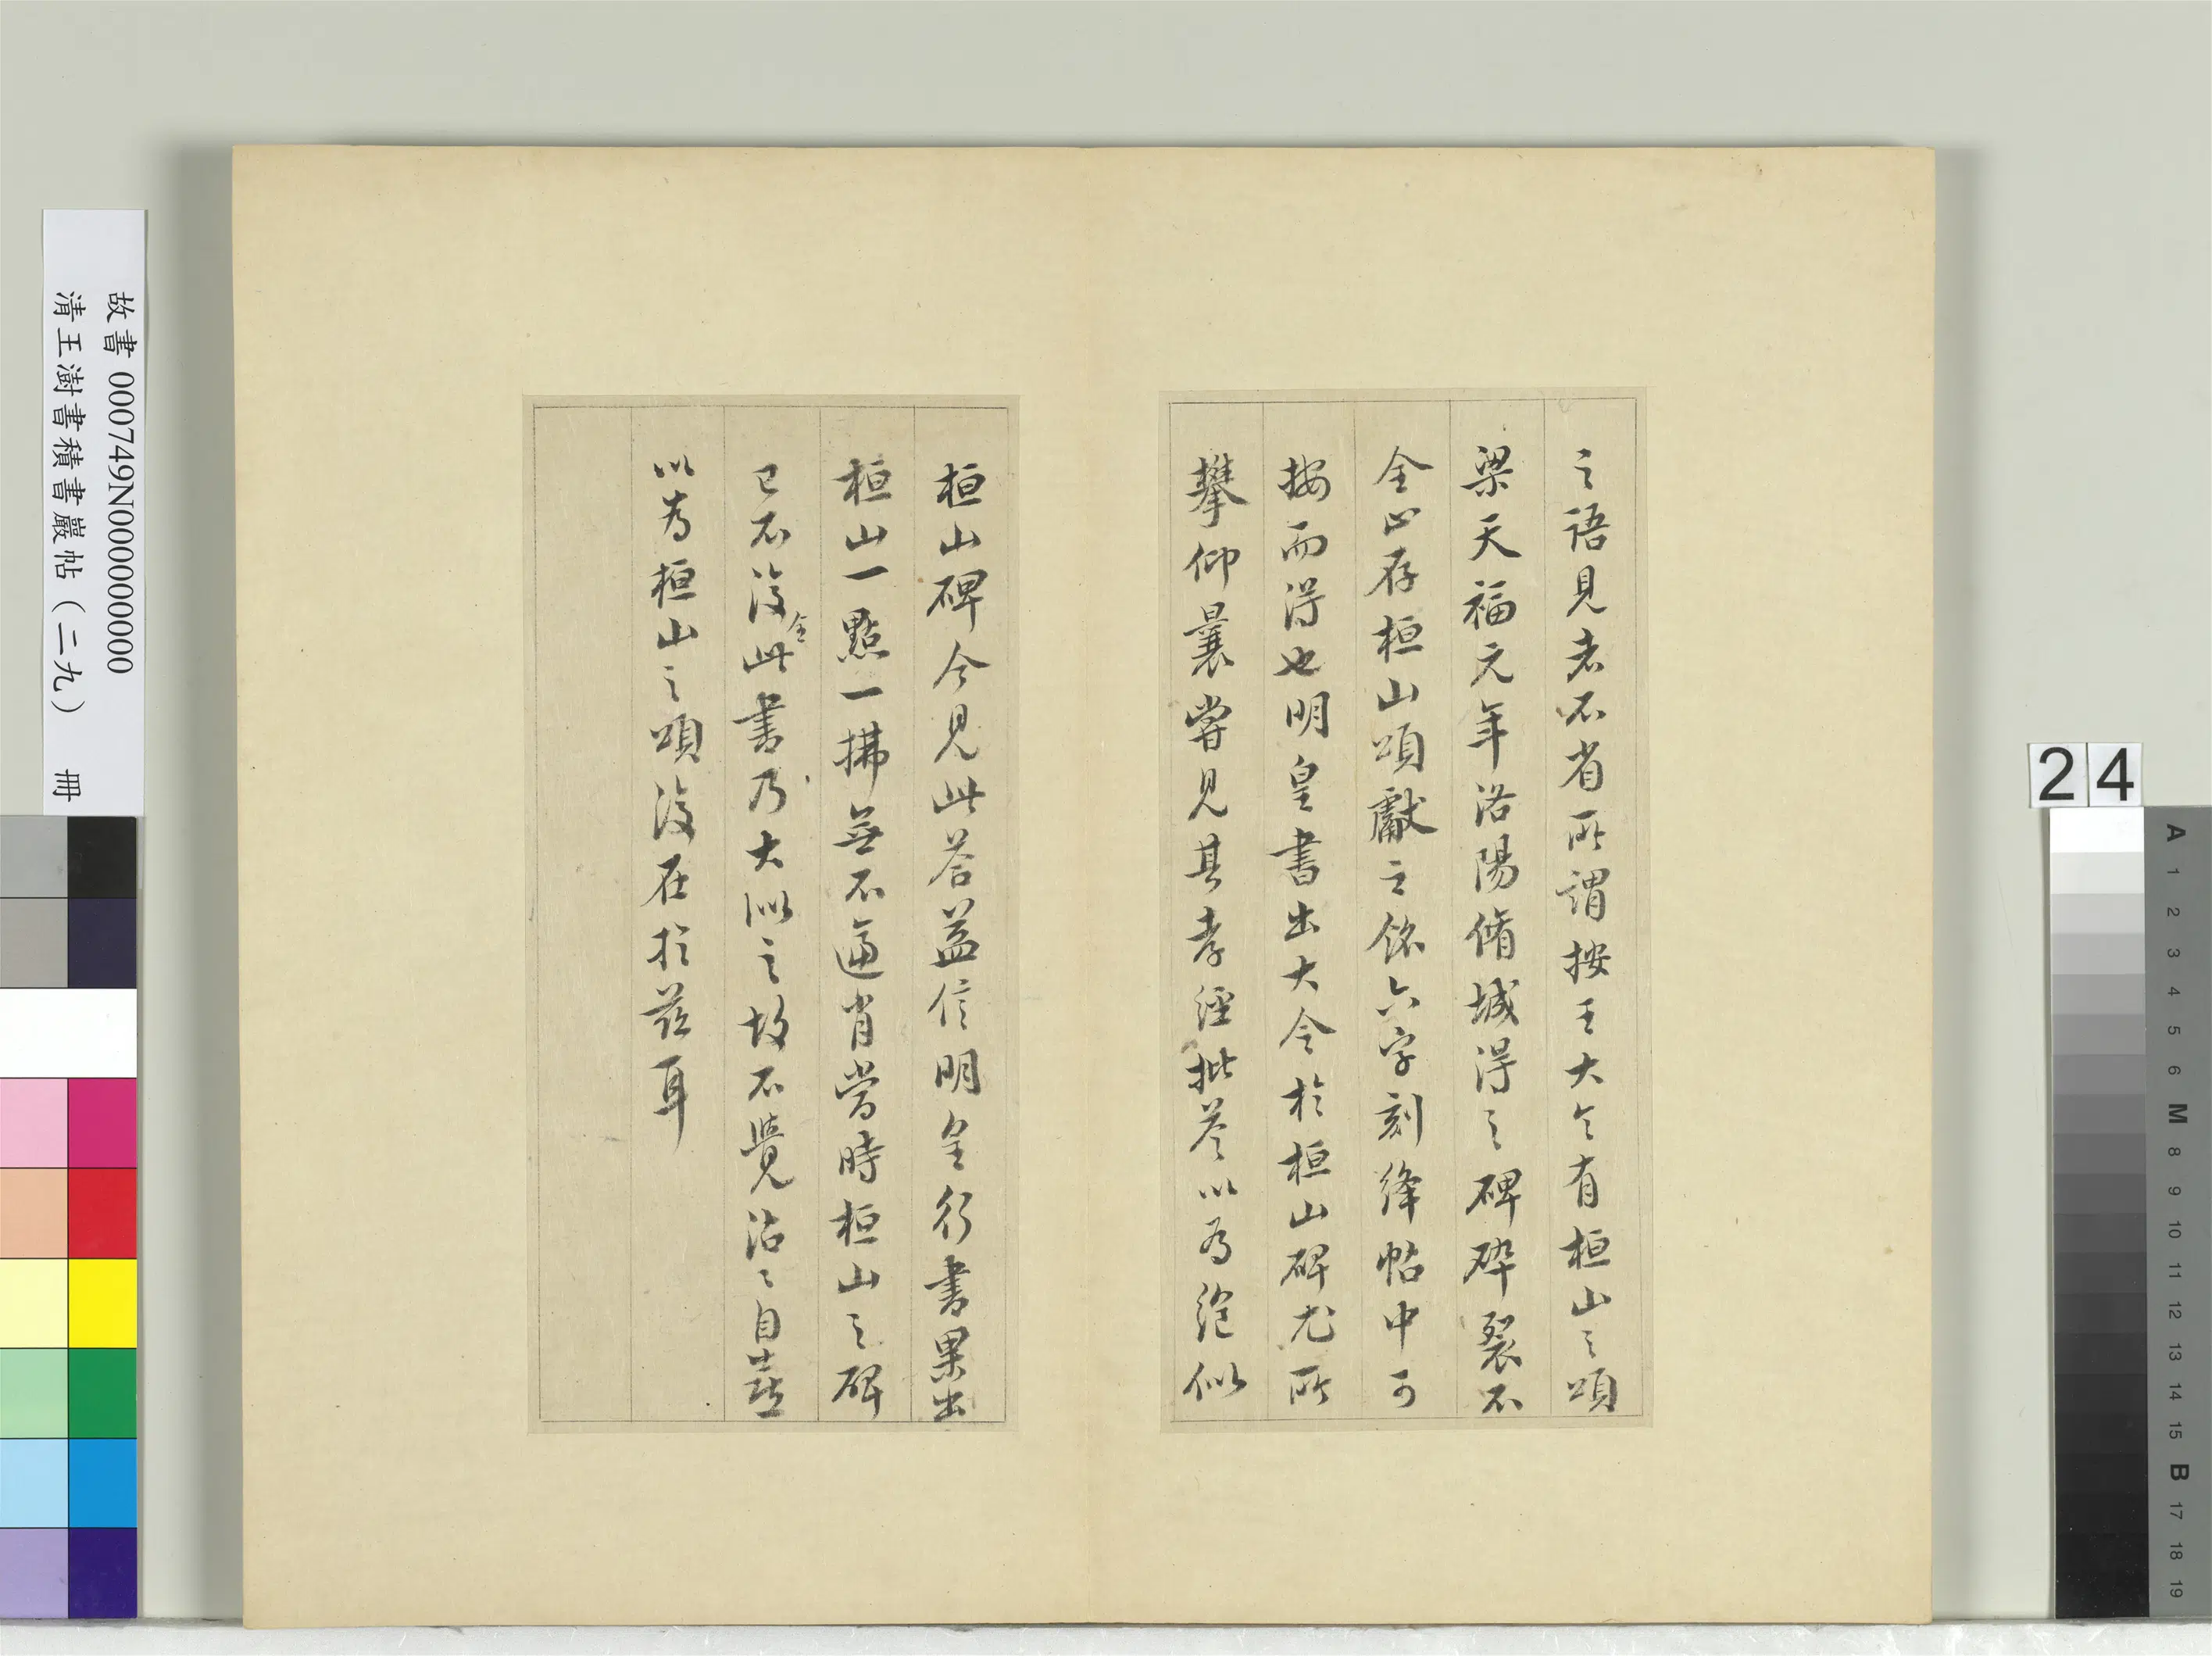 之語見者不省所謂按王大令有桓山之頌
梁天福元年洛陽脩城得之碑碎裂不
全止存桓山頌獻之銘六字刻絳帖中可
按而得也明皇書出大令於桓山碑尤所
攀仰曩嘗見其孝經批答以為絕似
桓山碑今見此答益信明皇行書果出
桓山一點一拂無不逼肖當時桓山之碑
已不復全此書乃大似之故不覺沾沾自喜
以為桓山之頌復在於茲耳
故書 000749N000000000
清王澍書積書巖帖（二九） 冊
24
A 1 2 3 4 5 6 M 8 9 10 11 12 13 14 15 B 17 18 19